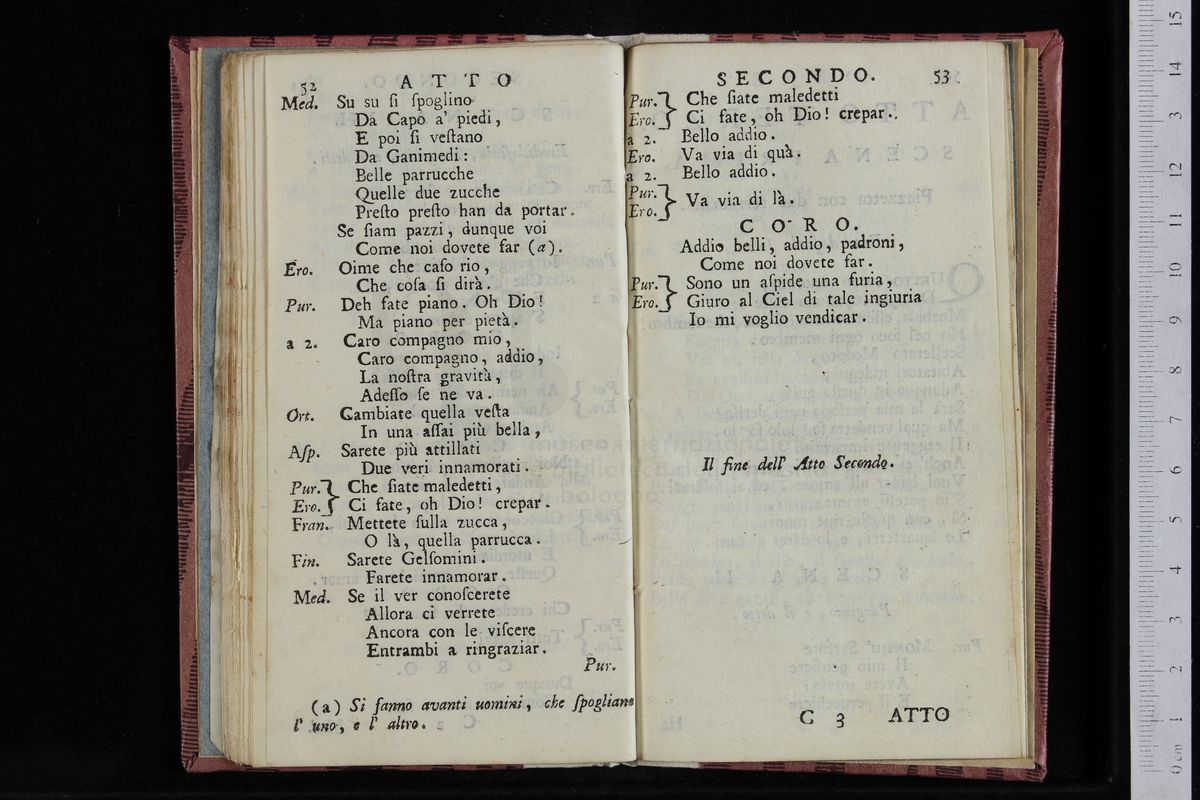 52 ATTO
Med. Su su ſi ſpoglino
Da Capo a' piedi,
E poi ſi veſtano
Da Ganimedi:
Belle parrucche
Quelle due zucche
Preſto preſto han da portar.
Se ſiam pazzi, dunque voi
Come noi dovete far (a).
Ero. Oime che caſo rio,
Che coſa ſi dirà.
Pur. Deh fate piano. Oh Dio!
Ma piano per pietà.
a 2. Caro compagno mio,
Caro compagno, addio,
La noſtra gravità,
Adeſſo ſe ne va.
Ort. Cambiate quella veſta
In una aſſai più bella,
Aſp. Sarete più attillati
Due veri innamorati.
Pur. } Che ſiate maledetti,
Ero. } Ci fate, oh Dio! crepar.
Fran. Mettete ſulla zucca,
O là, quella parrucca.
Fin. Sarete Gelſomini.
Farete innamorar.
Med. Se il ver conoſcerete
Allora ci verrete
Ancora con le viſcere
Entrambi a ringraziar.
Pur.
(a) Si fanno avanti uomini, che ſpogliano
l' uno, e l' altro.
SECONDO. 53
Pur. } Che ſiate maledetti
Ero. } Ci fate, oh Dio! crepar.
a 2. Bello addio.
Ero. Va via di quà.
a 2. Bello addio.
Pur. }
Ero. } Va via di là.
CORO.
Addio belli, addio, padroni,
Come noi dovete far.
Pur. } Sono un aſpide una furia,
Ero. } Giuro al Ciel di tale ingiuria
Io mi voglio vendicar.
Il fine dell' Atto Secondo.
C 3 ATTO
museo internazionale
biblioteca
bologna
0 cm 1 2 3 4 5 6 7 8 9 10 11 12 13 14 15